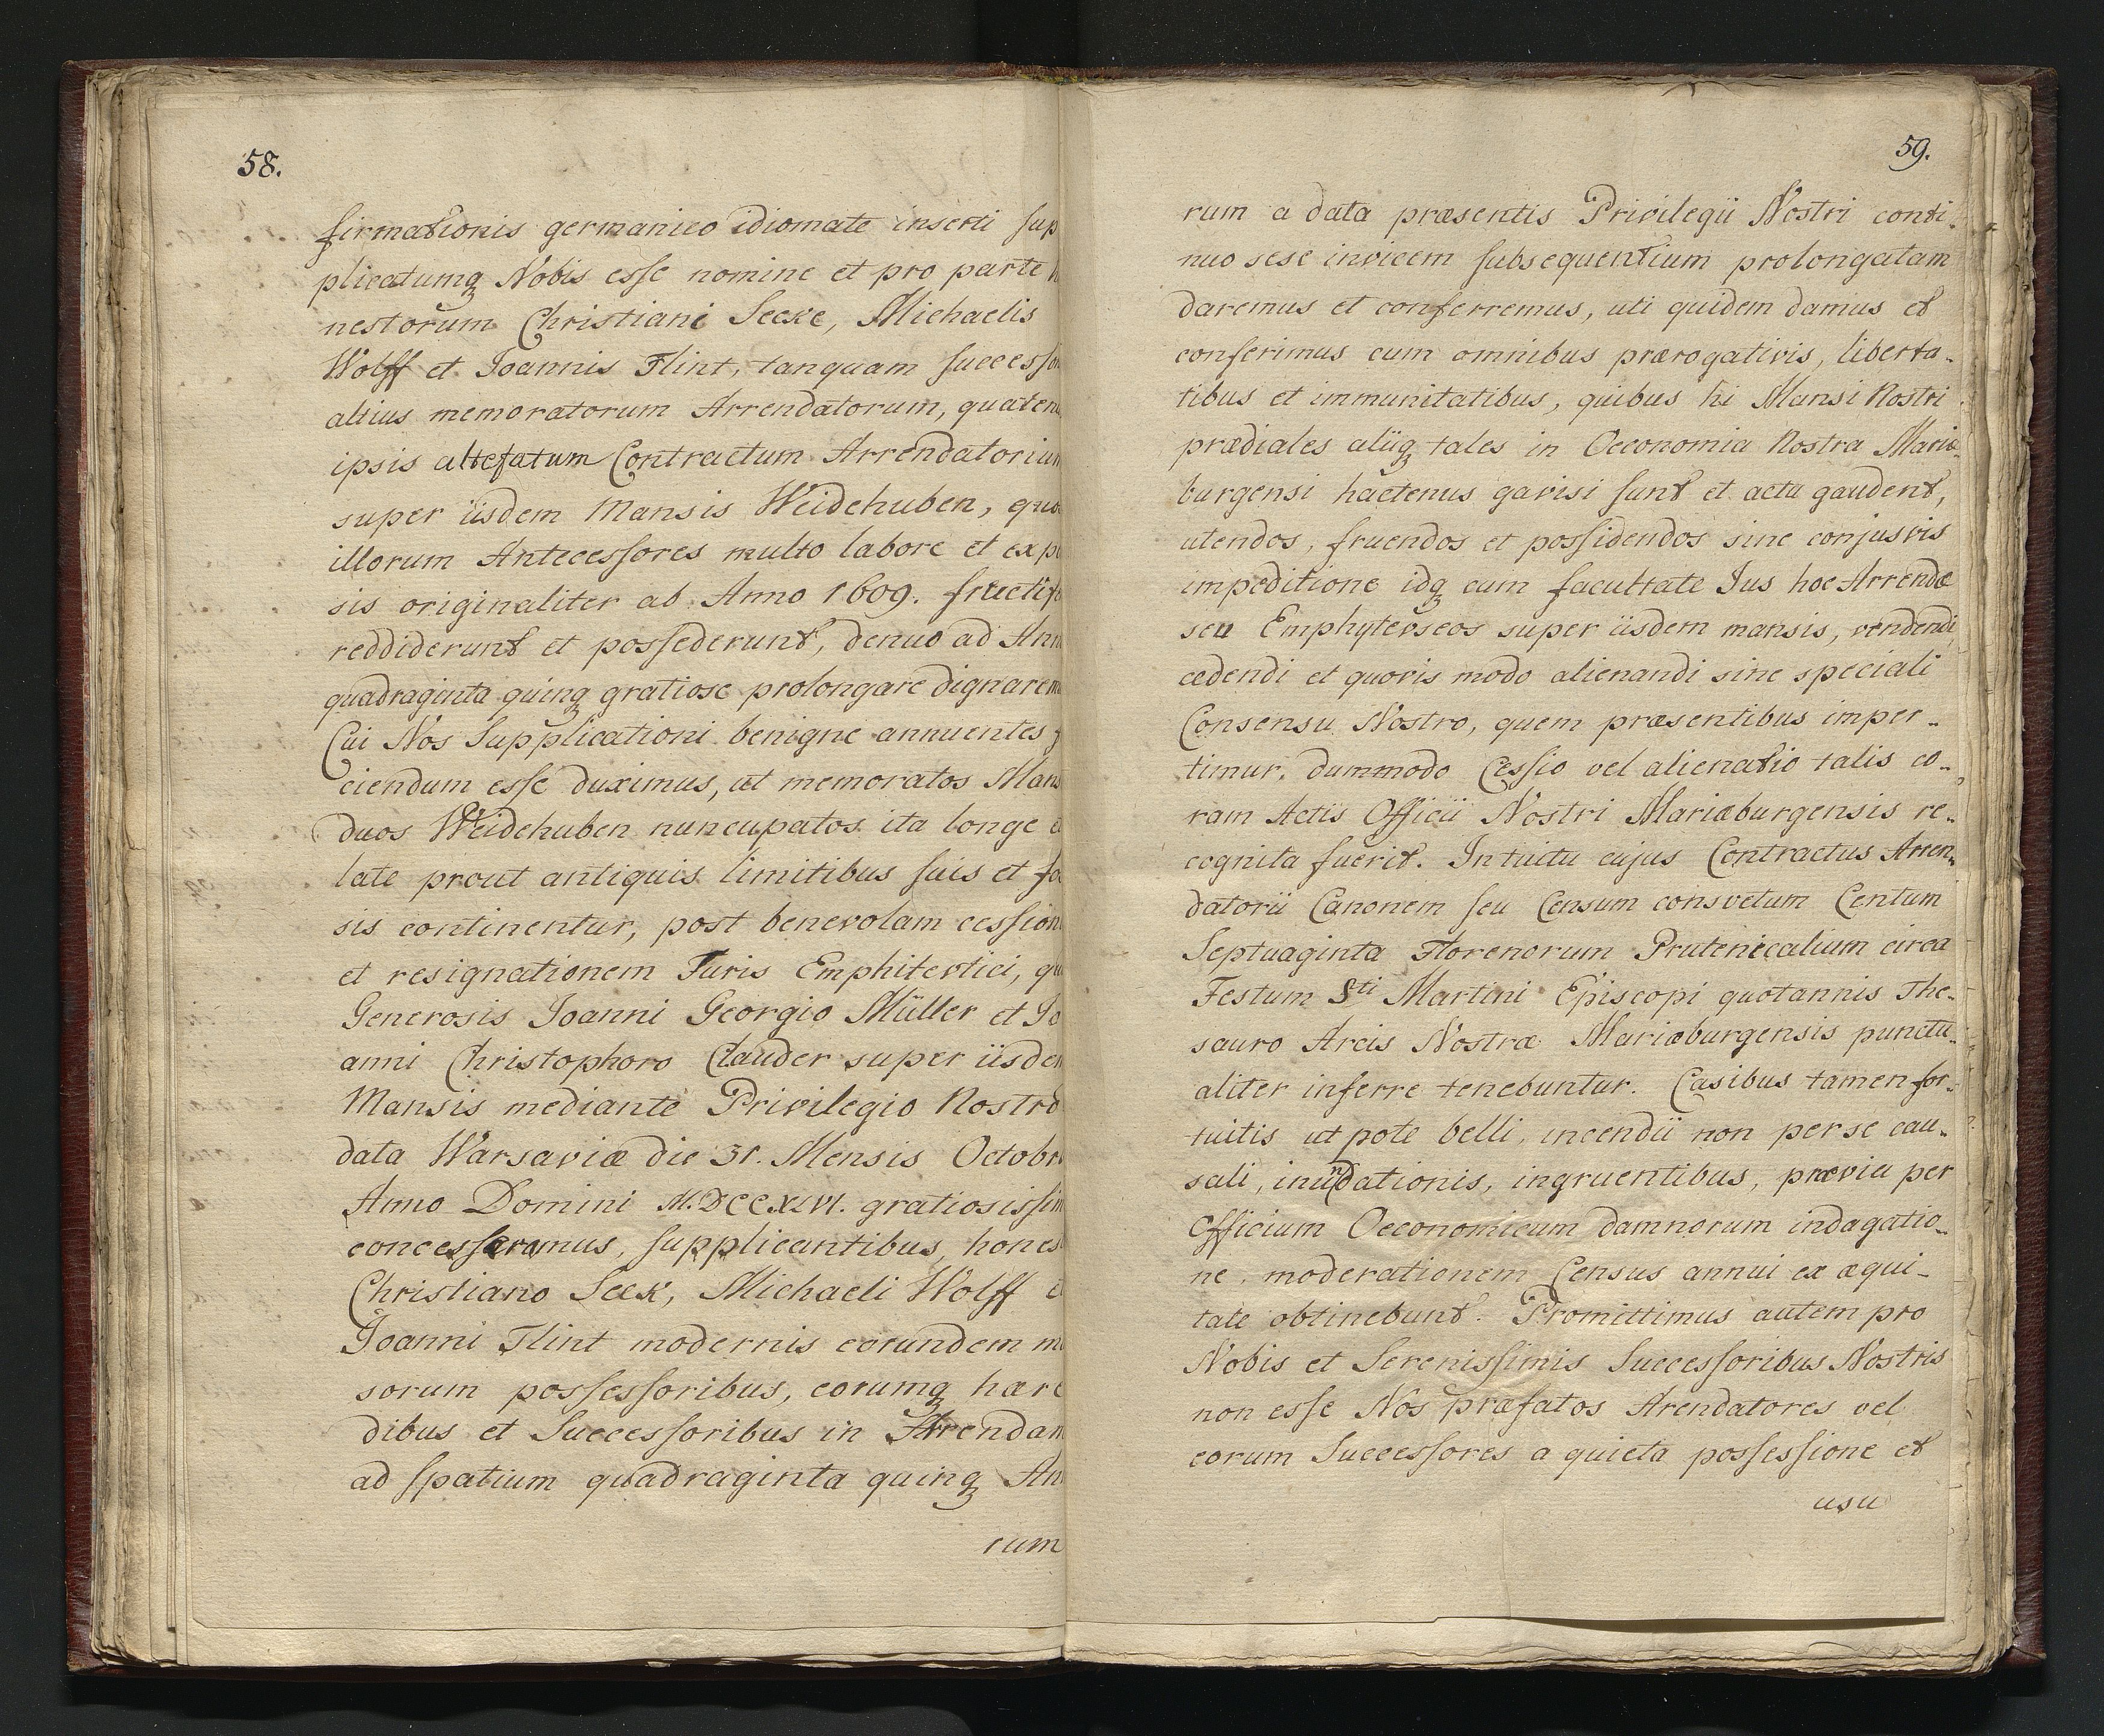 58.
firmationis germanico idiomate inserti sup
plicatumq₃ Nobis esse nomine et pro parte
nestorum Christiani Seeke, Michaelis
Wolff et Joannis Flint, tanquam Successo
altius memoratorum Arrendatorum, quaten
ipsis altefatum Contractum Arrendatorium
super iisdem Mansis Weidehuben, quo
illorum Antecessores multo labore et exp
sis originaliter ab Anno 1609. fructif
reddiderunt et possederunt, denuo ad Ann
quadraginta quinq₃ gratiose prolongare dignarem
Cui Nos Supplicationi benigne annuentes
ciendum esse duximus, ut memoratos Mans
duos Weidehuben nuncupatos ita longe e
late prout antiquis limitibus suis et fo
sis continentur, post benevolam cession
et resignationem Juris Emphitevtici, qu
Generosis Joanni Georgio Müller et Jo
anni Christophoro Clauder super iisdem
Mansis mediante Privilegio Nostro
data Warsaviæ die 31. Mensis Octobr
Anno Domini M.DCCXLVI. gratiosissim
concesseramus, supplicantibus, hones
Christiano Seek, Michaeli Wolff e
Joanni Flint modernis eorundem m
sorum possessoribus, eorumq₃ hære
dibus et Successoribus in Arendam
ad spatium quadraginta quinq₃ An
rum
59.
rum a data præsentis Privilegii Nostri conti-
nuo sese invicem subsequentium prolongatam
daremus et conferremus, uti quidem damus et
conferimus cum omnibus prærogativis, liberta-
tibus et immunitatibus, quibus hi Mansi Nostri
prædiales aliiq₃ tales in Oeconomia Nostra Mariæ-
burgensi hactenus gavisi sunt et actu gaudent,
utendos, fruendos et possidendos sine conjusvis
impeditione idq₃ cum facultate Jus hoc Arrendæ
seu Emphytevseos super iisdem mansis, vendendi
cedendi et quovis modo alienandi sine speciali
Consensu Nostro, quem præsentibus imper-
timur, dummodo Cessio vel alienatio talis co-
ram Actis Officii Nostri Mariæburgensis re-
cognita fuerit. Intuitu cujus Contractus Arren-
datorii Canonem seu Censum consvetum Centum
Septuaginta Florenorum Prutenicalium circa
Festum Sti Martini Episcopi quotannis The-
sauro Arcis Nostræ Mariæburgensis punctu-
aliter inferre tenebuntur. Casibus tamen for-
tuitis ut pote belli, incendii non per se cau-
sali, inundationis, ingruentibus, prævia per
Officium Oeconomicum damnorum indagatio-
ne, moderationem Census annui ex æqui-
tate obtinebunt. Promittimus autem pro
Nobis et Serenissimis Successoribus Nostris
non esse Nos præfatos Arendatores vel
eorum Successores a quieta possessione et
usu